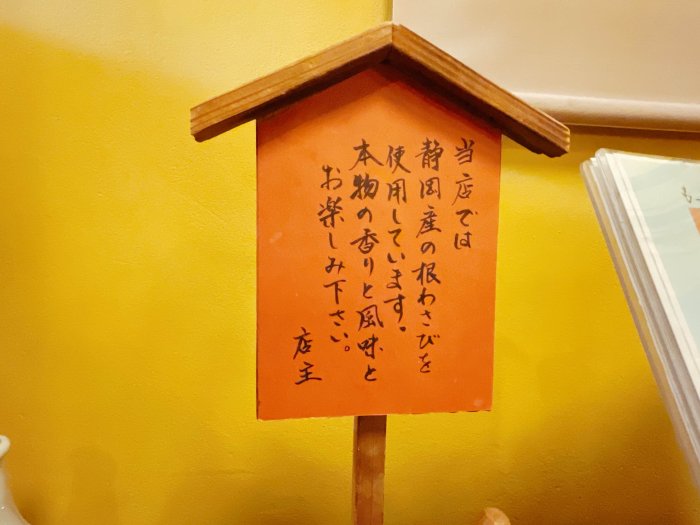 当店では
静岡産の根わさびを
使用しています。
本物の香りと風味と
お楽しみ下さい。
店主